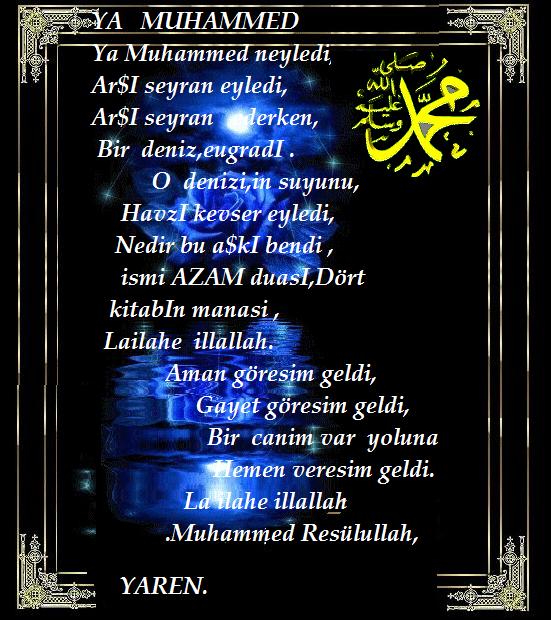 YA MUHAMMED
Ya Muhammed neyledi,
Ar$I seyran eyledi,
Ar$I seyran ederken,
Bir deniz,eugradI .
O denizi,in suyunu,
HavzI kevser eyledi,
Nedir bu a$kI bendi ,
ismi AZAM duasI,Dört
kitabIn manasi ,
Lailahe illallah.
Aman göresim geldi,
Gayet göresim geldi,
Bir canim var yoluna
Hemen veresim geldi.
La ilahe illallah
.Muhammed Resülullah,
YAREN.
محمد
صلى
الله
عليه
وسلم